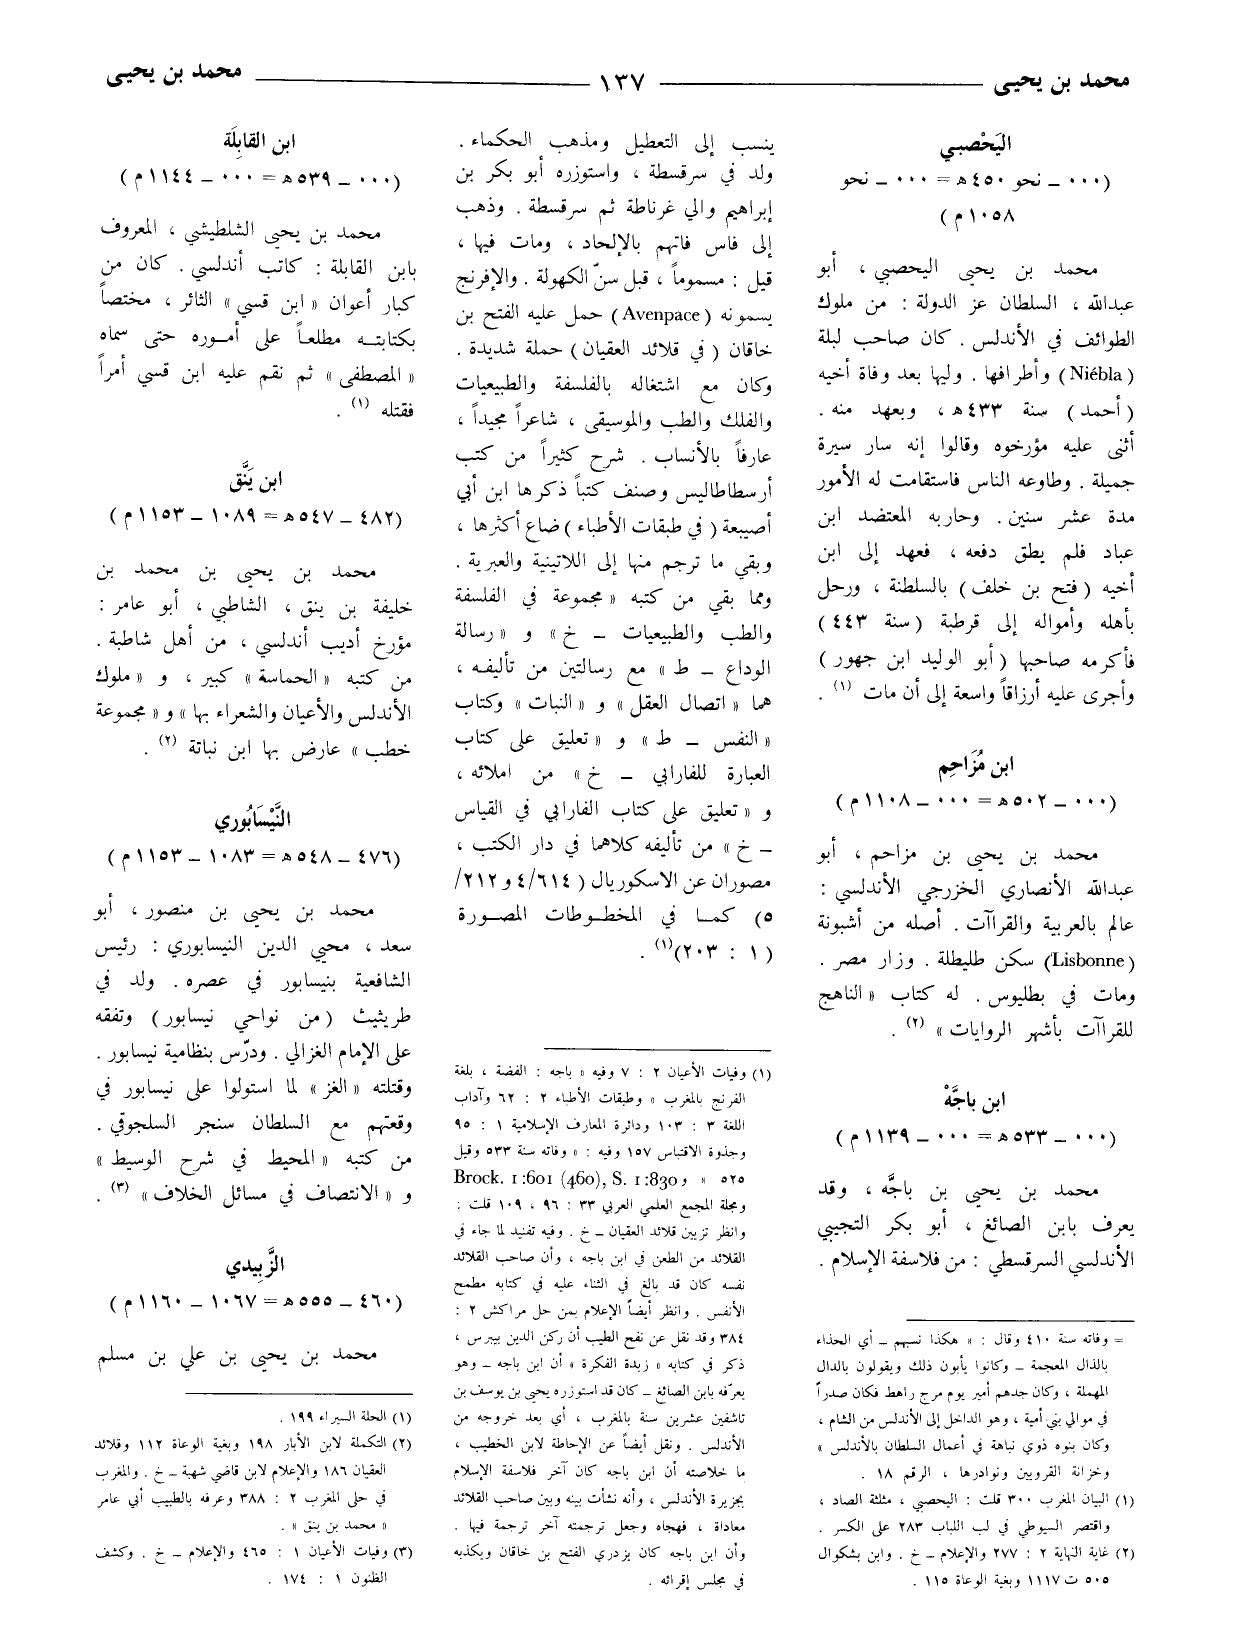 محمد بن يحيى ١٣٧ محمد بن يحيى
اليَحْصبي
(٠٠٠ ــ نحو ٤٥٠ هـ = ٠٠٠ ــ نحو
١٠٥٨ م)
محمد بن يحيى اليحصبي ، أبو
عبدالله ، السلطان عز الدولة : من ملوك
الطوائف في الأندلس . كان صاحب لبلة
(Niébla) وأطرافها . وليها بعد وفاة أخيه
( أحمد ) سنة ٤٣٣ هـ ، وبعهد منه .
أثنى عليه مؤرخوه وقالوا إنه سار سيرة
جميلة . وطاوعه الناس فاستقامت له الأمور
مدة عشر سنين . وحاربه المعتضد ابن
عباد فلم يطق دفعه ، فعهد إلى ابن
أخيه ( فتح بن خلف ) بالسلطنة ، ورحل
بأهله وأمواله إلى قرطبة ( سنة ٤٤٣ )
فأكرمه صاحبها ( أبو الوليد ابن جهور )
وأجرى عليه أرزاقاً واسعة إلى أن مات (١) .
ابن مُزَاحِم
(٠٠٠ ــ ٥٠٢ هـ = ٠٠٠ ــ ١١٠٨ م)
محمد بن يحيى بن مزاحم ، أبو
عبدالله الأنصاري الخزرجي الأندلسي :
عالم بالعربية والقراآت . أصله من أشبونة
(Lisbonne) سكن طليطلة . وزار مصر .
ومات في بطليوس . له كتاب « الناهج
للقراآت بأشهر الروايات » (٢) .
ابن باجَّهْ
(٠٠٠ ــ ٥٣٣ هـ = ٠٠٠ ــ ١١٣٩ م)
محمد بن يحيى بن باجَّه ، وقد
يعرف بابن الصائغ ، أبو بكر التجيبي
الأندلسي السرقسطي : من فلاسفة الإسلام .
= وفاته سنة ٤١٠ وقال : « هكذا نسبهم ــ أي الحذاء
بالذال المعجمة ــ وكانوا يأبون ذلك ويقولون بالدال
المهملة ، وكان جدهم أمير يوم مرج راهط فكان صدراً
في موالي بني أمية ، وهو الداخل إلى الأندلس من الشام ،
وكان بنوه ذوي نباهة في أعمال السلطان بالأندلس »
وخزانة القرويين ونوادرها ، الرقم ١٨ .
(١) البيان المغرب ٣٠٠ قلت : اليحصبي ، مثلثة الصاد ،
واقتصر السيوطي في لب اللباب ٢٨٣ على الكسر .
(٢) غاية النهاية ٢ : ٢٧٧ والإعلام ــ خ . وابن بشكوال
٥٠٥ ت ١١١٧ وبغية الوعاة ١١٥ .
ينسب إلى التعطيل ومذهب الحكماء .
ولد في سرقسطة ، واستوزره أبو بكر بن
إبراهيم والي غرناطة ثم سرقسطة . وذهب
إلى فاس فاتهم بالإلحاد ، ومات فيها ،
قيل : مسموماً ، قبل سنّ الكهولة . والإفرنج
يسمونه ( Avenpace ) حمل عليه الفتح بن
خاقان ( في قلائد العقيان ) حملة شديدة .
وكان مع اشتغاله بالفلسفة والطبيعيات
والفلك والطب والموسيقى ، شاعراً مجيداً ،
عارفاً بالأنساب . شرح كثيراً من كتب
أرسطاطاليس وصنف كتباً ذكرها ابن أبي
أصيبعة ( في طبقات الأطباء ) ضاع أكثرها ،
وبقي ما ترجم منها إلى اللاتينية والعبرية .
ومما بقي من كتبه « مجموعة في الفلسفة
والطب والطبيعيات ــ خ » و « رسالة
الوداع ــ ط » مع رسالتين من تأليفه ،
هما « اتصال العقل » و « النبات » وكتاب
« النفس ــ ط » و « تعليق على كتاب
العبارة للفارابي ــ خ » من املائه ،
و « تعليق على كتاب الفارابي في القياس
ــ خ » من تأليفه كلاهما في دار الكتب ،
مصوران عن الاسكوريال ( ٤/٦١٤ و ٢١٢/
٥) كما في المخطوطات المصورة
( ١ : ٢٠٣)(١) .
(١) وفيات الأعيان ٢ : ٧ وفيه « باجه : الفضة ، بلغة
الفرنج بالمغرب » وطبقات الأطباء ٢ : ٦٢ وآداب
اللغة ٣ : ١٠٣ ودائرة المعارف الإسلامية ١ : ٩٥
وجذوة الاقتباس ١٥٧ وفيه : « وفاته سنة ٥٣٣ وقيل
٥٢٥ » و Brock. 1:601 (460), S. 1:830
ومجلة المجمع العلمي العربي ٣٣ : ٩٦ ، ١٠٩ قلت :
وانظر تزيين قلائد العقيان ــ خ . وفيه تفنيد لما جاء في
القلائد من الطعن في ابن باجه ، وأن صاحب القلائد
نفسه كان قد بالغ في الثناء عليه في كتابه مطمح
الأنفس . وانظر أيضاً الإعلام بمن حل مراكش ٢ :
٣٨٤ وقد نقل عن نفح الطيب أن ركن الدين بيبرس ،
ذكر في كتابه « زبدة الفكرة » أن ابن باجه ــ وهو
يعرّفه بابن الصائغ ــ كان قد استوزره يحيى بن يوسف بن
تاشفين عشرين سنة بالمغرب ، أي بعد خروجه من
الأندلس . ونقل أيضاً عن الإحاطة لابن الخطيب ،
ما خلاصته أن ابن باجه كان آخر فلاسفة الإسلام
بجزيرة الأندلس ، وأنه نشأت بينه وبين صاحب القلائد
معاداة ، فهجاه وجعل ترجمته آخر ترجمة فيها .
وأن ابن باجه كان يزدري الفتح بن خاقان ويكذبه
في مجلس إقرائه .
ابن القابِلَة
(٠٠٠ ــ ٥٣٩ هـ = ٠٠٠ ــ ١١٤٤ م)
محمد بن يحيى الشلطيشي ، المعروف
بابن القابلة : كاتب أندلسي . كان من
كبار أعوان « ابن قسي » الثائر ، مختصاً
بكتابته مطلعاً على أموره حتى سماه
« المصطفى » ثم نقم عليه ابن قسي أمراً
فقتله (١) .
ابن يَنَّق
(٤٨٢ ــ ٥٤٧ هـ = ١٠٨٩ ــ ١١٥٣ م)
محمد بن يحيى بن محمد بن
خليفة بن ينق ، الشاطبي ، أبو عامر :
مؤرخ أديب أندلسي ، من أهل شاطبة .
من كتبه « الحماسة » كبير ، و « ملوك
الأندلس والأعيان والشعراء بها » و « مجموعة
خطب » عارض بها ابن نباتة (٢) .
النَّيْسَابُوري
(٤٧٦ ــ ٥٤٨ هـ = ١٠٨٣ ــ ١١٥٣ م)
محمد بن يحيى بن منصور ، أبو
سعد ، محيي الدين النيسابوري : رئيس
الشافعية بنيسابور في عصره . ولد في
طريثيث ( من نواحي نيسابور ) وتفقه
على الإمام الغزالي . ودرّس بنظامية نيسابور .
وقتلته « الغز » لما استولوا على نيسابور في
وقعتهم مع السلطان سنجر السلجوقي .
من كتبه « المحيط في شرح الوسيط »
و « الانتصاف في مسائل الخلاف » (٣) .
الزَّبِيدي
(٤٦٠ ــ ٥٥٥ هـ = ١٠٦٧ ــ ١١٦٠ م)
محمد بن يحيى بن علي بن مسلم
(١) الحلة السيراء ١٩٩ .
(٢) التكملة لابن الأبار ١٩٨ وبغية الوعاة ١١٢ وقلائد
العقيان ١٨٦ والإعلام لابن قاضي شهبة ــ خ . والمغرب
في حلى المغرب ٢ : ٣٨٨ وعرفه بالطبيب أبي عامر
« محمد بن ينق » .
(٣) وفيات الأعيان ١ : ٤٦٥ والإعلام ــ خ . وكشف
الظنون ١ : ١٧٤ .